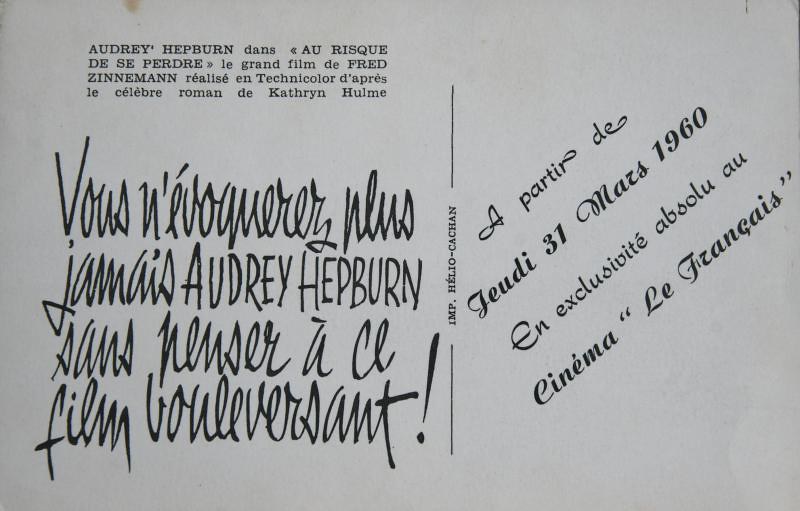 AUDREY' HEPBURN dans « AU RISQUE
DE SE PERDRE » le grand film de FRED
ZINNEMANN réalisé en Technicolor d'après
le célèbre roman de Kathryn Hulme
Vous n'évoquerez plus
jamais AUDREY HEPBURN
sans penser à ce
film bouleversant !
IMP. HÉLIO-CACHAN
A partir de
Jeudi 31 Mars 1960
En exclusivité absolu au
Cinéma " Le Français "